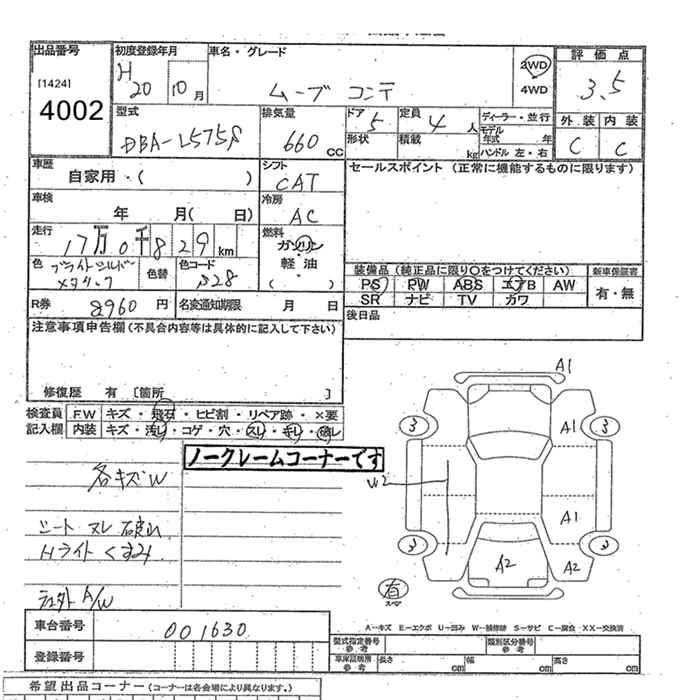 出品番号 初度登録年月 車名・グレード 評価点
[1424] H20 10月 ムーブ コンテ 2WD 3.5
4002 4WD
型式 排気量 ドア 定員 ディーラー・並行 外装 内装
DBA-L575S 660cc 5 4人 モデル年式 年 C C
形状 積載 kg ハンドル 左・右
車歴 シフト セールスポイント (正常に機能するものに限ります)
自家用・( ) CAT
車検 冷房
年 月( 日) AC
走行 燃料
17万0千829km ガソリン・軽油 ( )
色 ブライトシルバーメタリック 色替 色コード S28
装備品 (純正品に限り○をつけてください) 新車保証書
PS PW ABS エアB AW 有・無
SR ナビ TV カワ
R券 8960円 名変通知期限 月 日 後日品
注意事項申告欄 (不具合内容等は具体的に記入して下さい)
修復歴 有 [箇所 ]
検査員 F.W キズ・飛石・ヒビ割・リペア跡・×要
記入欄 内装 キズ・汚レ・コゲ・穴・スレ・キレ・破レ
ノークレームコーナーです
各キズW
シート ヌレ
Hライト くすみ
A/W
A1
3 A1 3
W2
A1
3 3
A2 A2
有
スペア
A-キズ E-エクボ U-凹み W-補修跡 S-サビ C-腐食 XX-交換済
車台番号 001630
型式指定番号 参考 類別区分番号 参考
登録番号
車庫証明用 参考 長さ cm 幅 cm 高さ cm
希望出品コーナー (コーナーは各会場により異なります。)